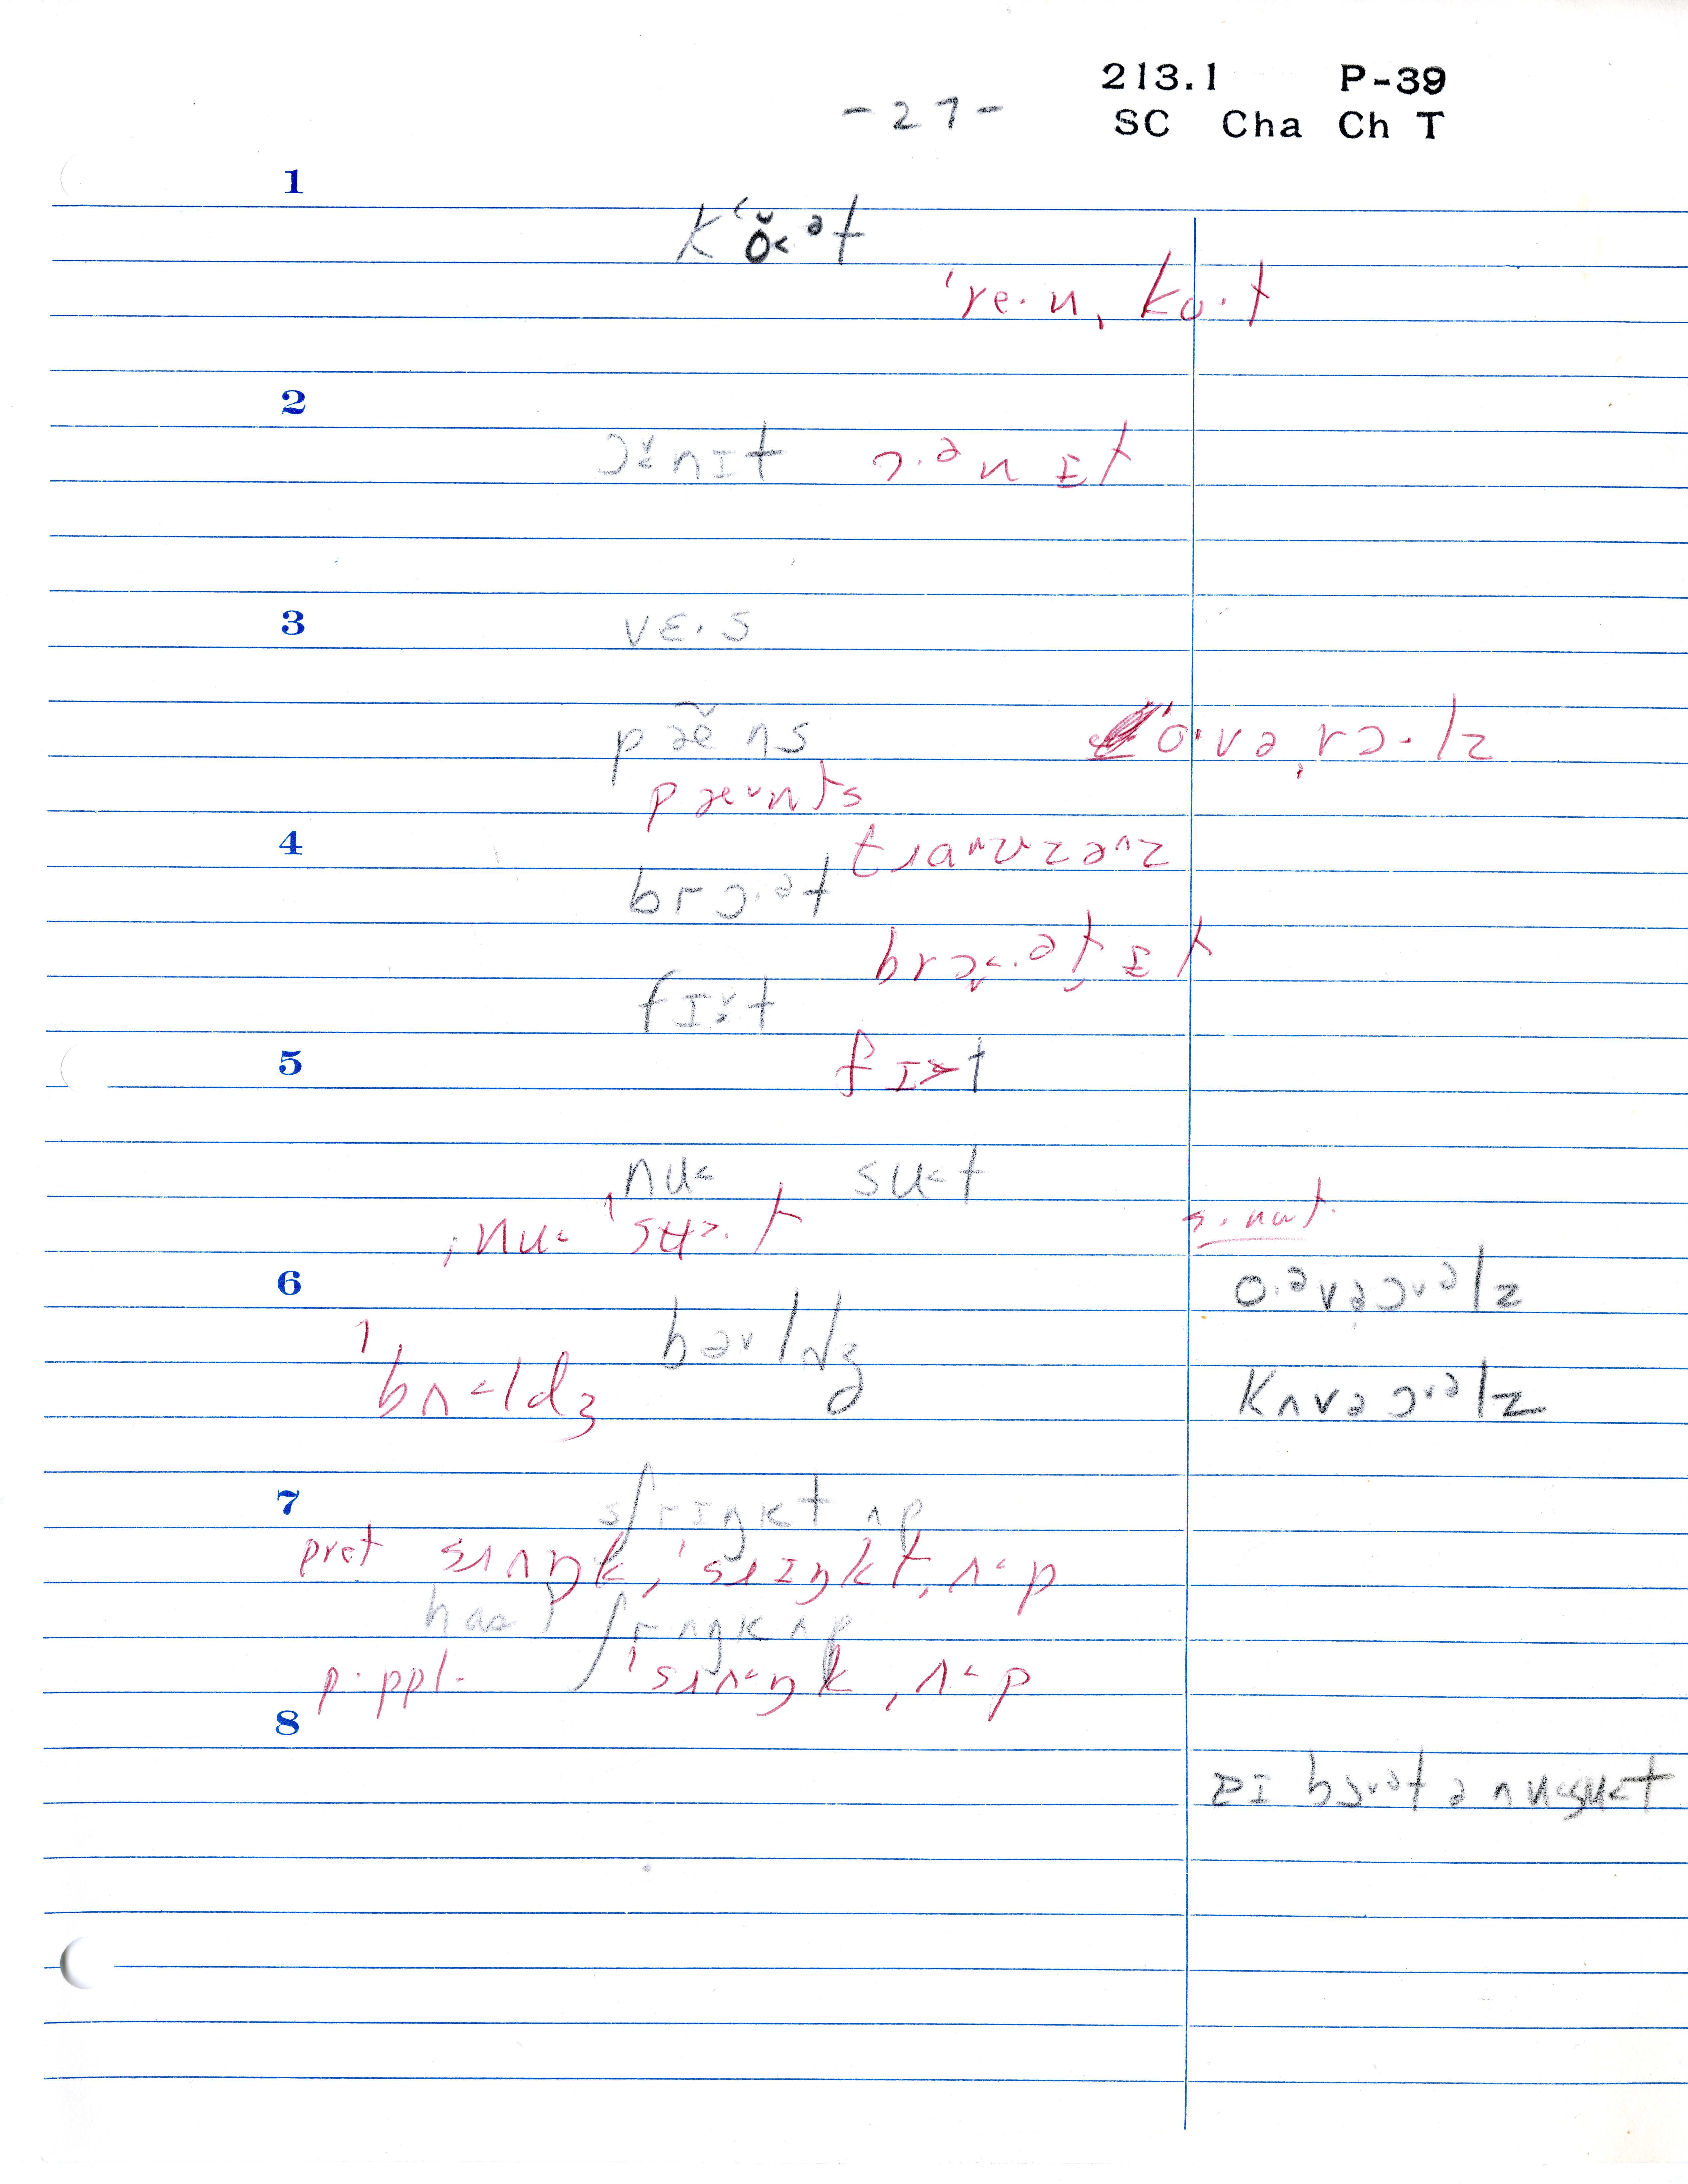 213.1 P-39
-27- SC Cha Ch T
1
kʻŏ˂ᵊt
ˈre·n, ko·t
2
ɔ̆˂nɪt ɔ·ənɪt
3
vɛ·s
pæ̆ns ˈo·vəˌrɔ·lz
pæ˅nts
4
brɔ·ət
brɔ˂·ətɪt
fɪ˃t
5
fɪ˃t
nu˂ su˂t
ˌnu˂ ˈsʉ˃·t
6
o·ᵊvəɔ˅ᵊlz
bə˅ldʒ
ˈbʌ˂ldʒ
kʌvəɔ˅ᵊlz
7
ʃrɪŋkt ʌp
pret sɹʌŋk, ˈsɹɪŋkt, ʌ˂p
ʃrʌŋk ʌp
p. ppl. ˈsɹʌ˂ŋk, ʌ˂p
8
bɔ˅ᵊt ə nu˂su˂t